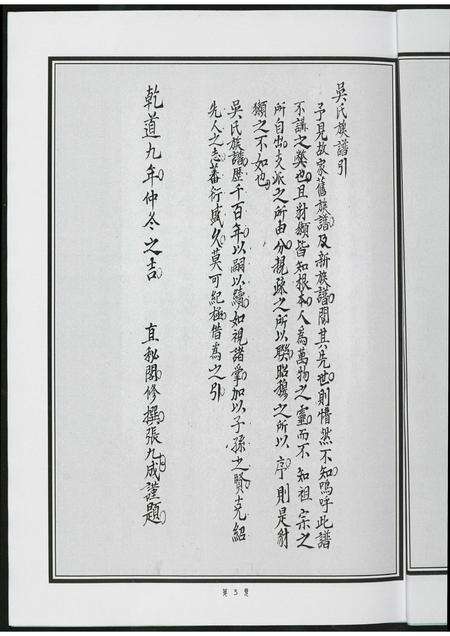 吳氏族譜引
予見故家舊族譜及新族譜閱其先世則懵然不知嗚呼此譜
不講之獘也且豺獺皆知根本人為萬物之靈而不知祖宗之
所自出支派之所由分親疎之所以聯昭穆之所以序則是豺
獺之不如也
吳氏族譜歷千百年以嗣以續如視諸掌加以子孫之賢克紹
先人之志蕃衍盛久莫可紀極借為之引
乾道九年仲冬之吉
直秘閣修撰張九成謹題
第 5 見